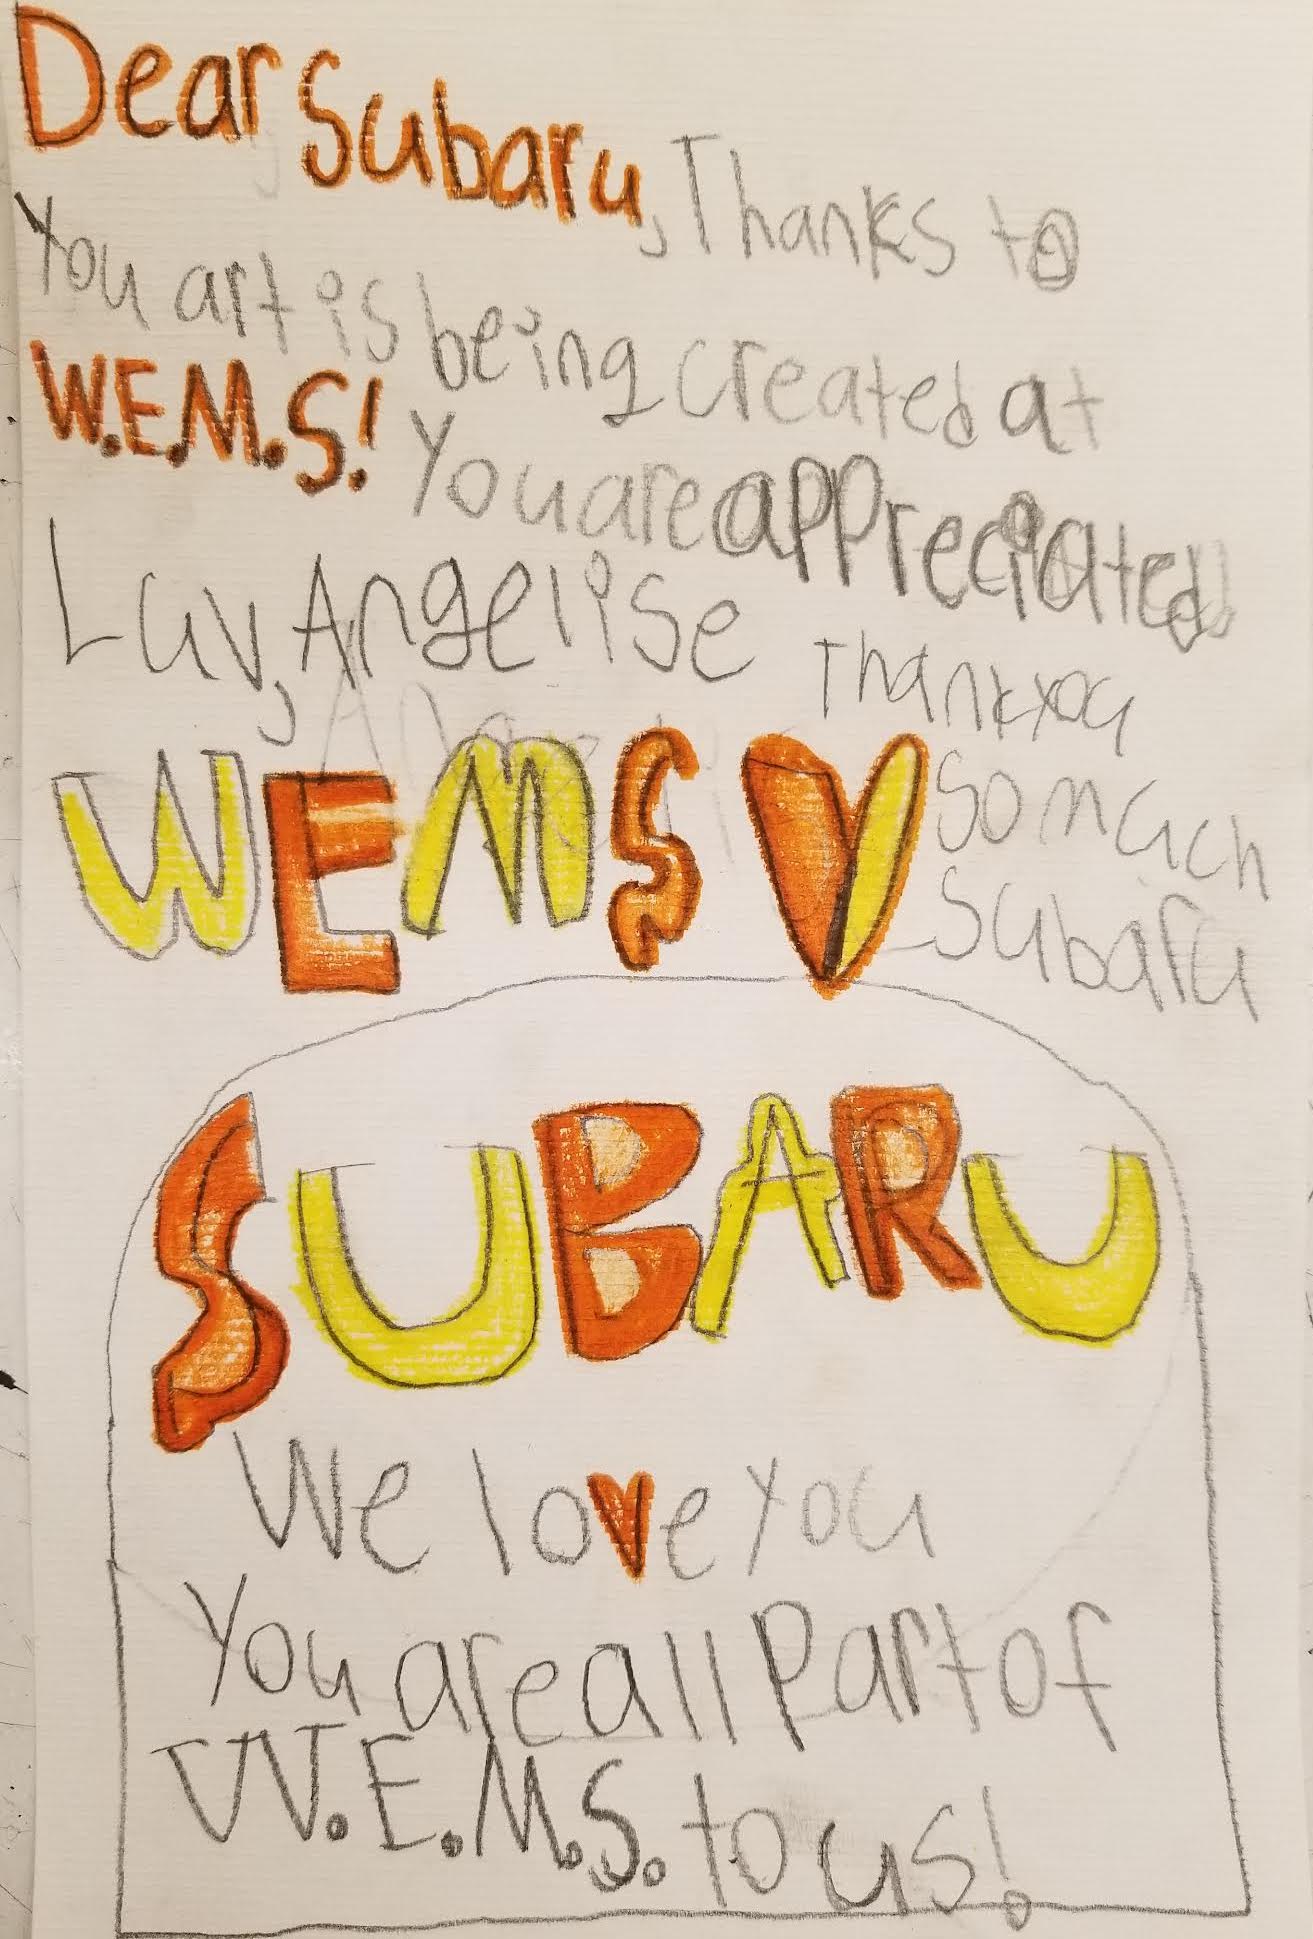 Dear Subaru, Thanks to
You art is being created at
W.E.M.S! You are appreciated!
Luv, Angelise
Thank you
so much
Subaru
WEMS
SUBARU
We love you
You are all part of
W.E.M.S. to us!